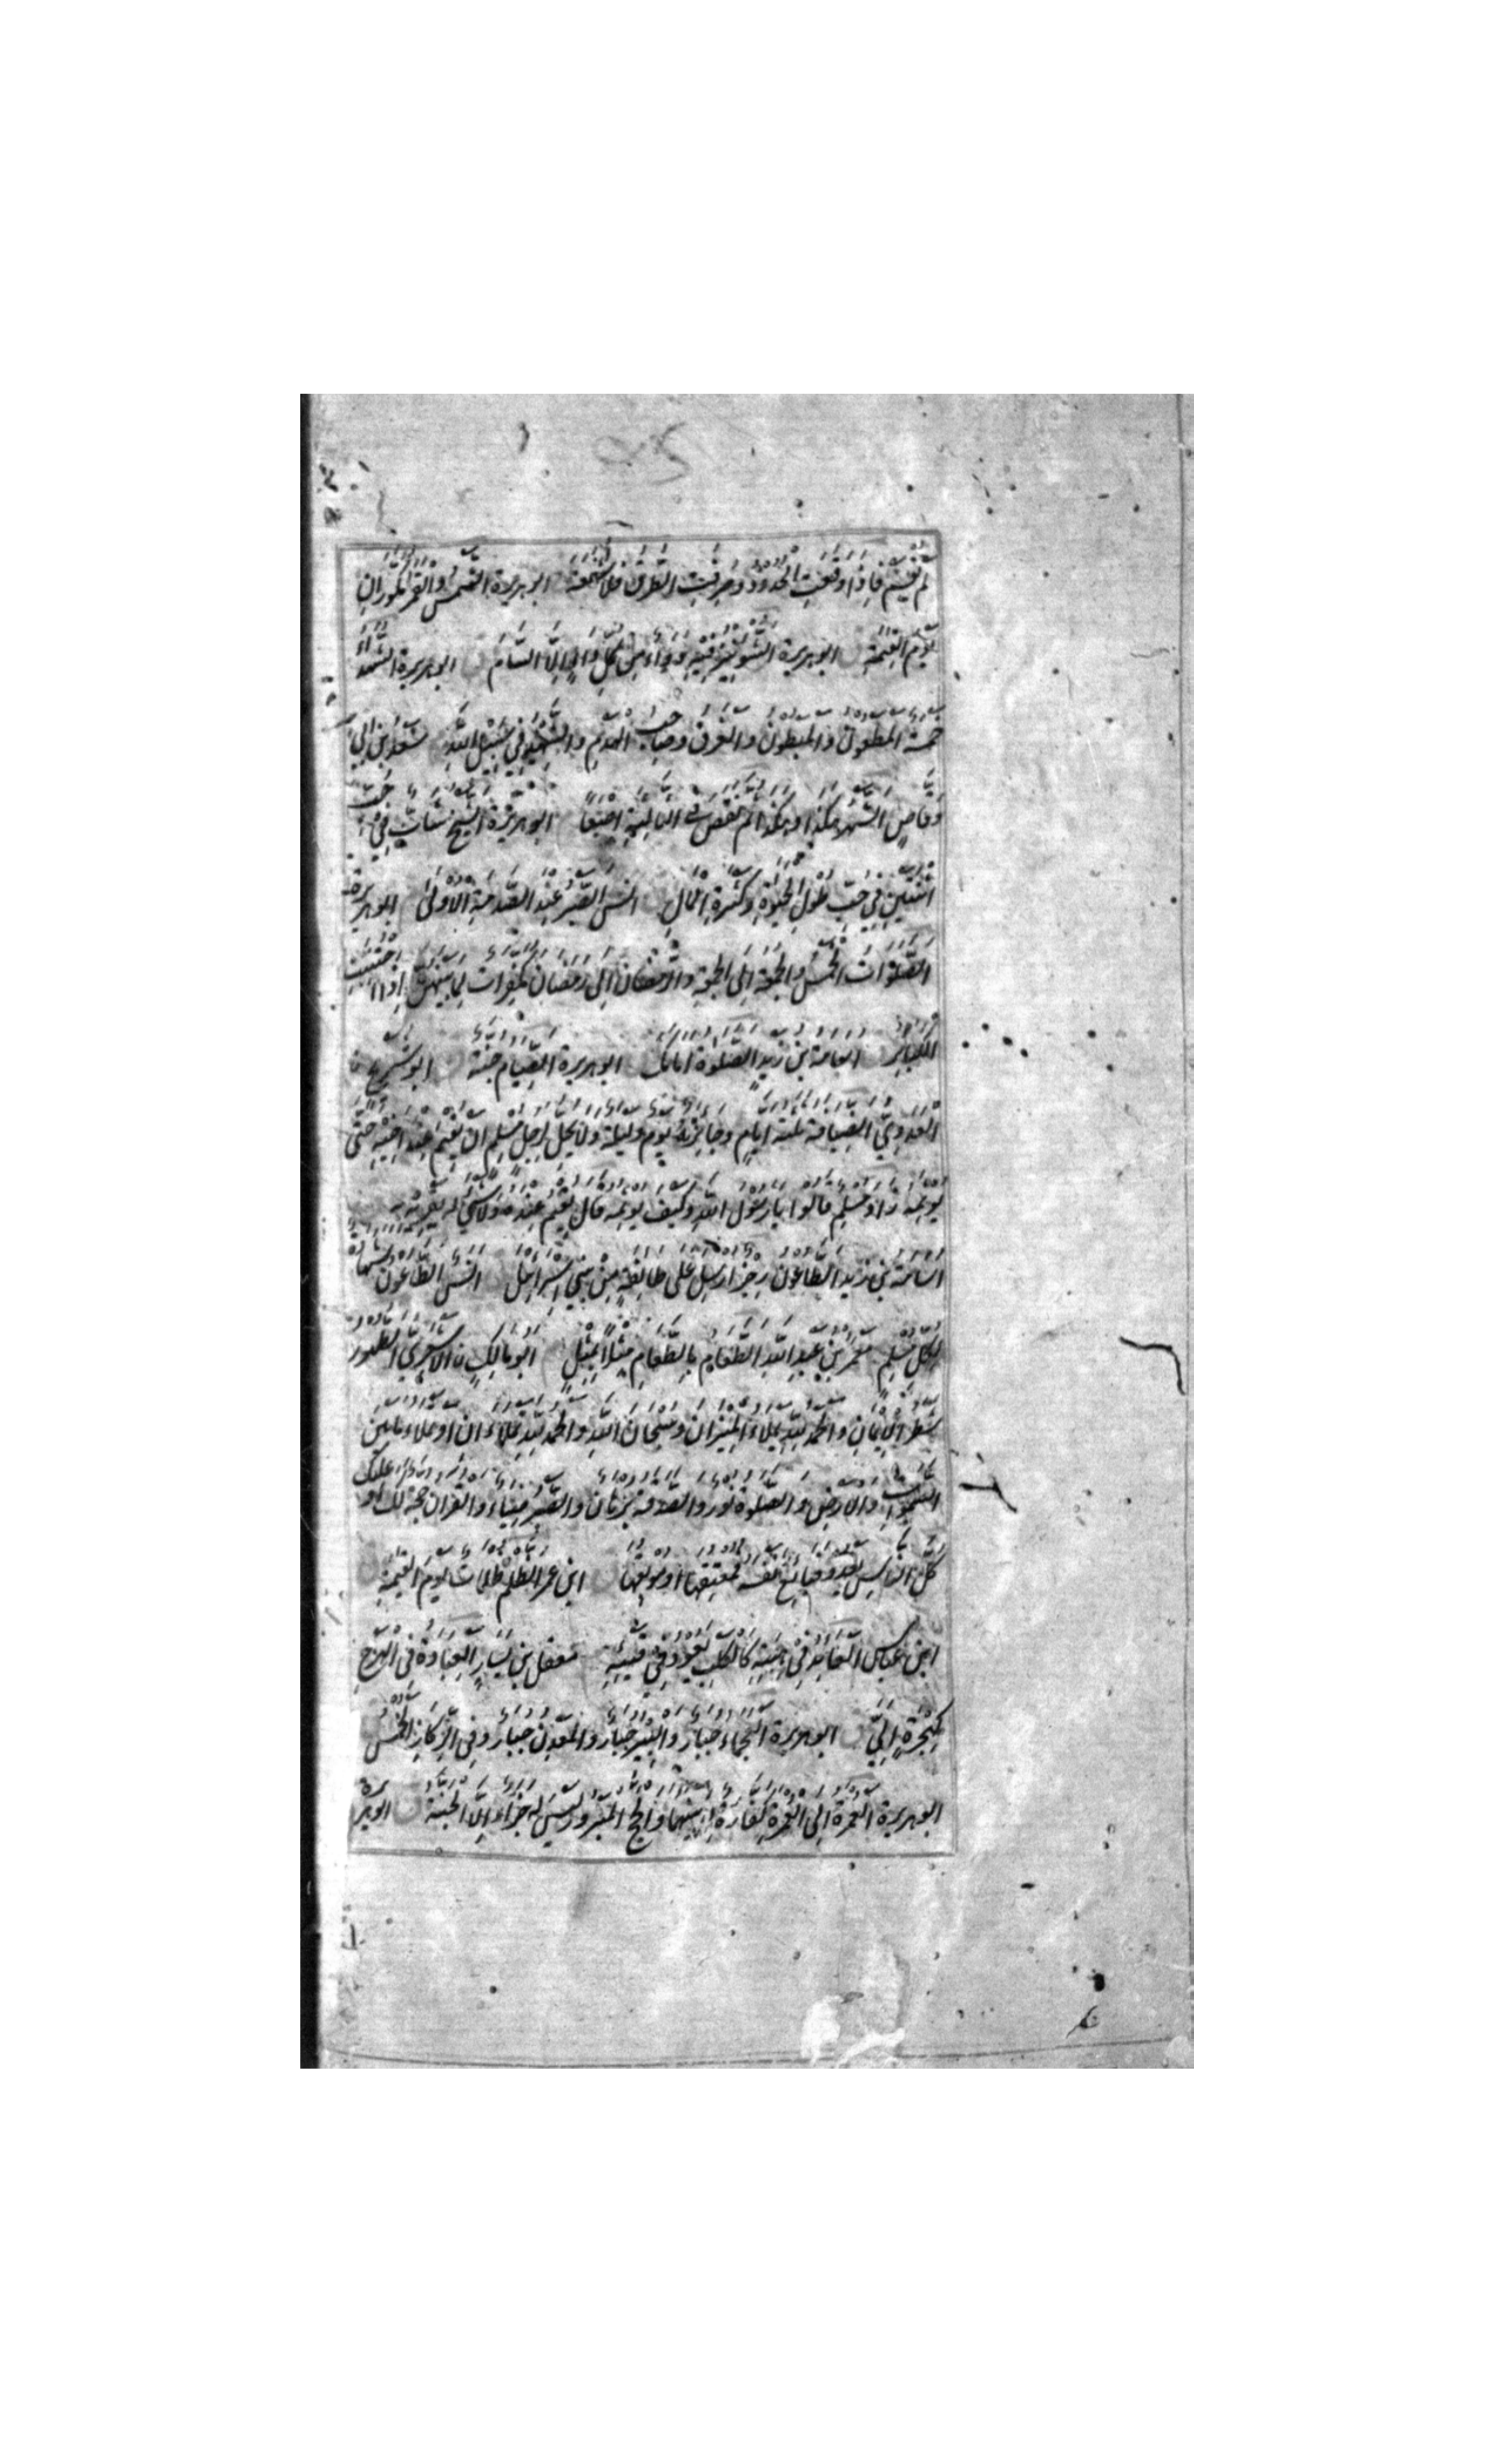 لم يقسم فاذا وقعت الحدود وصرفت الطرق فلا شفعة ابو هريرة الشمس والقمر مكوران
يوم القيمة ابو هريرة الشونيز فيه دواء من كل داء الا السام ابو هريرة الشهداء
خمسة المطعون والمبطون والغرق وصاحب الهدم والشهيد في سبيل الله سعد بن ابي
وقاص الشهر هكذا وهكذا ثم نقص في الثالثة اصبعا ابو هريرة الشيخ شاب في حب
اثنتين في حب طول الحيوة وكثرة المال انس الصبر عند الصدمة الاولى ابو هريرة
الصلوات الخمس والجمعة الى الجمعة والرمضان الى رمضان مكفرات لما بينهن اذا اجتنبت
الكبائر اسامة بن زيد الصلوة امامك ابو هريرة الصيام جنة ابو شريح
العدوي الضيافة ثلثة ايام وجايزته يوم وليلة ولا يحل لرجل مسلم ان يقيم عند اخيه حتى
يوثمه قالوا يا رسول الله وكيف يوثمه قال يقيم عنده ولا شيء له يقريه به
اسامة بن زيد الطاعون رجز ارسل على طائفة من بني اسرائيل انس الطاعون شهادة
لكل مسلم معمر بن عبد الله الطعام بالطعام مثلا بمثل ابو مالك الاشعري الطهور
شطر الايمان والحمد لله يملاء الميزان وسبحان الله والحمد لله يملاءان او يملاء ما بين
السموات والارض والصلوة نور والصدقة برهان والصبر ضياء والقران حجة لك او عليك
كل الناس يغدو فبائع نفسه فمعتقها او موبقها ابن عمر الظلم ظلمات يوم القيمة
ابن عباس العائد في هبته كالكلب يعود في قيئه معقل بن يسار العبادة في الهرج
كهجرة الي ابو هريرة العجماء جبار والبئر جبار والمعدن جبار وفي الركاز الخمس
ابو هريرة العمرة الى العمرة كفارة لما بينهما والحج المبرور ليس له جزاء الا الجنة ابو هريرة